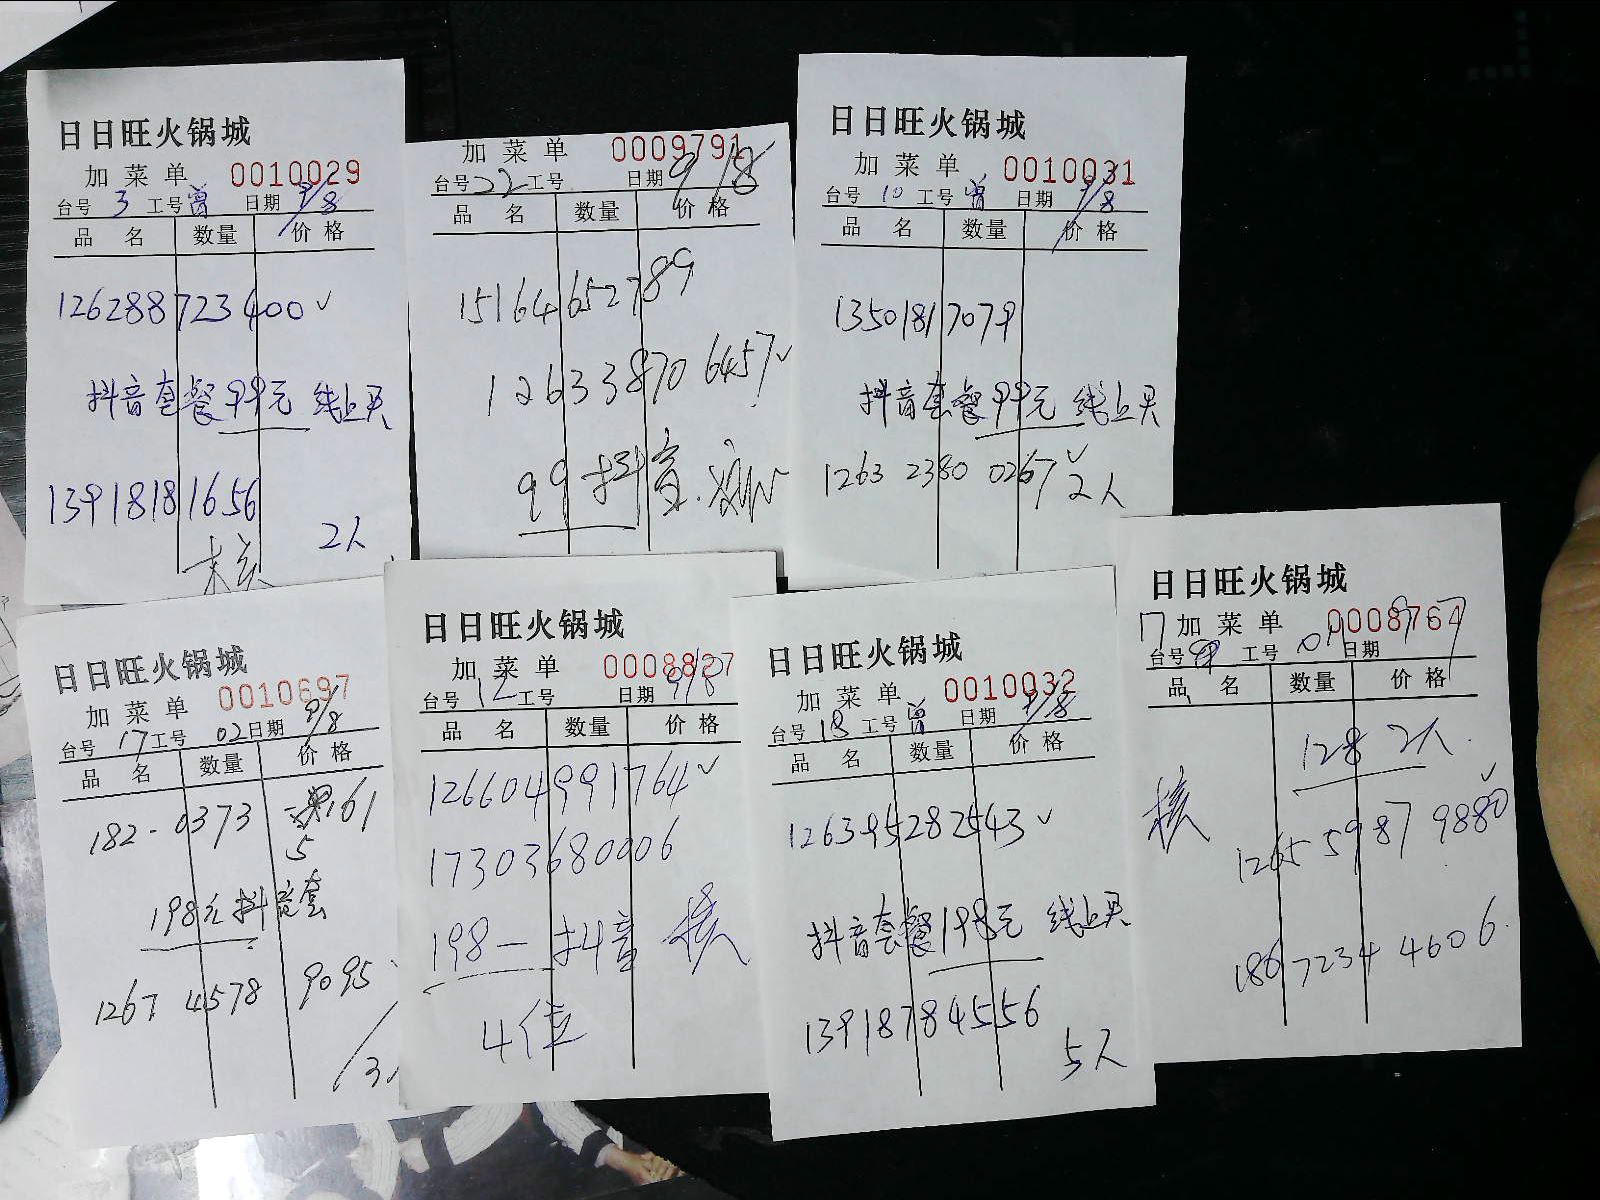 日日旺火锅城
加菜单 0010029
台号 3 工号 曾 日期 9/8
品名 数量 价格
126288723400✓
抖音套餐99元 线上买
13918181656
2人
未核
加菜单 0009791
台号 22 工号 日期 9/8
品名 数量 价格
15164652789
126338706457✓
99抖音.
日日旺火锅城
加菜单 0010031
台号 10 工号 曾 日期 9/8
品名 数量 价格
13501817079
抖音套餐99元 线上买
1263 2380 0267✓
2人
日日旺火锅城
加菜单 0010697
台号 17 工号 02 日期 9/8
品名 数量 价格
182-0373 161
5
198元抖音套
1267 4578 9095
日日旺火锅城
加菜单 0008827
台号 12 工号 日期 9/8
品名 数量 价格
126604991764✓
17303680006
198一抖音 核
4位
日日旺火锅城
加菜单 0010032
台号 18 工号 曾 日期 9/8
品名 数量 价格
126395282543✓
抖音套餐198元 线上买
13918784556
5人
日日旺火锅城
17 加菜单 0008764
台号 工号 01 日期
品名 数量 价格
128 2人.
核
1265 5987 9880✓
186 7234 4606.